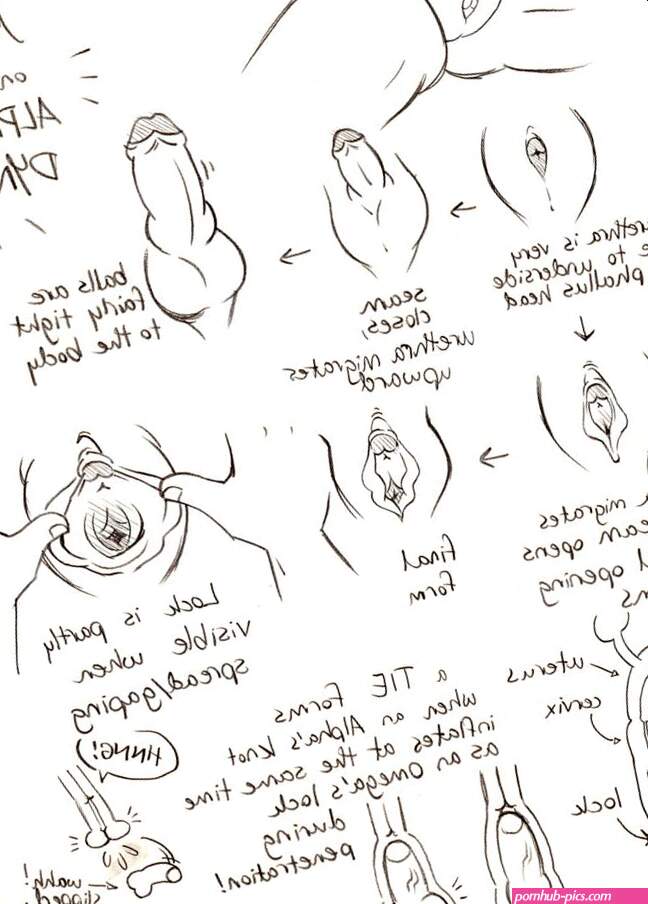 on
ALP
DYN
urethra is very
to underside
phallus head
seam
closes,
urethra migrates
upward
balls are
fairly tight
to the body
migrates
seam opens
opening
final
form
Lock is partly
visible when
spread/gaping
uterus
cervix
lock
a TIE forms
when an Alpha's knot
inflates at the same time
as an Omega's lock
during
penetration!
HNNG!
wahh!
slipped
pornhub-pics.com